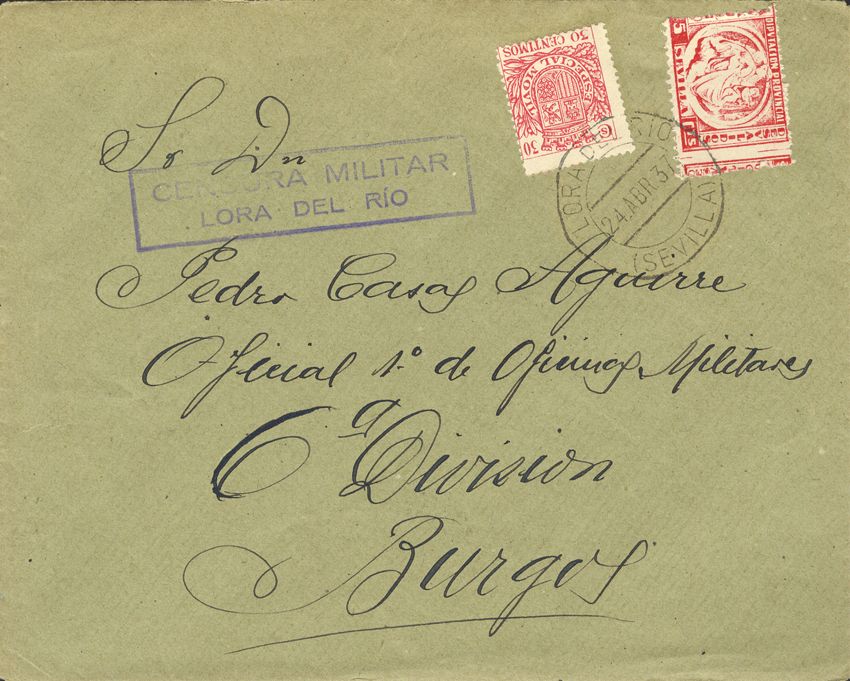 30 CENTIMOS
ESPECIAL MOVIL
30 Cs
DIPUTACION PROVINCIAL
5 SEVILLA
LORA DEL RIO
24.ABR.37
(SEVILLA)
Sr Dn
CENSURA MILITAR
LORA DEL RÍO
Pedro Casas Aguirre
Oficial 1º de Oficinas Militares
6ª Division
Burgos